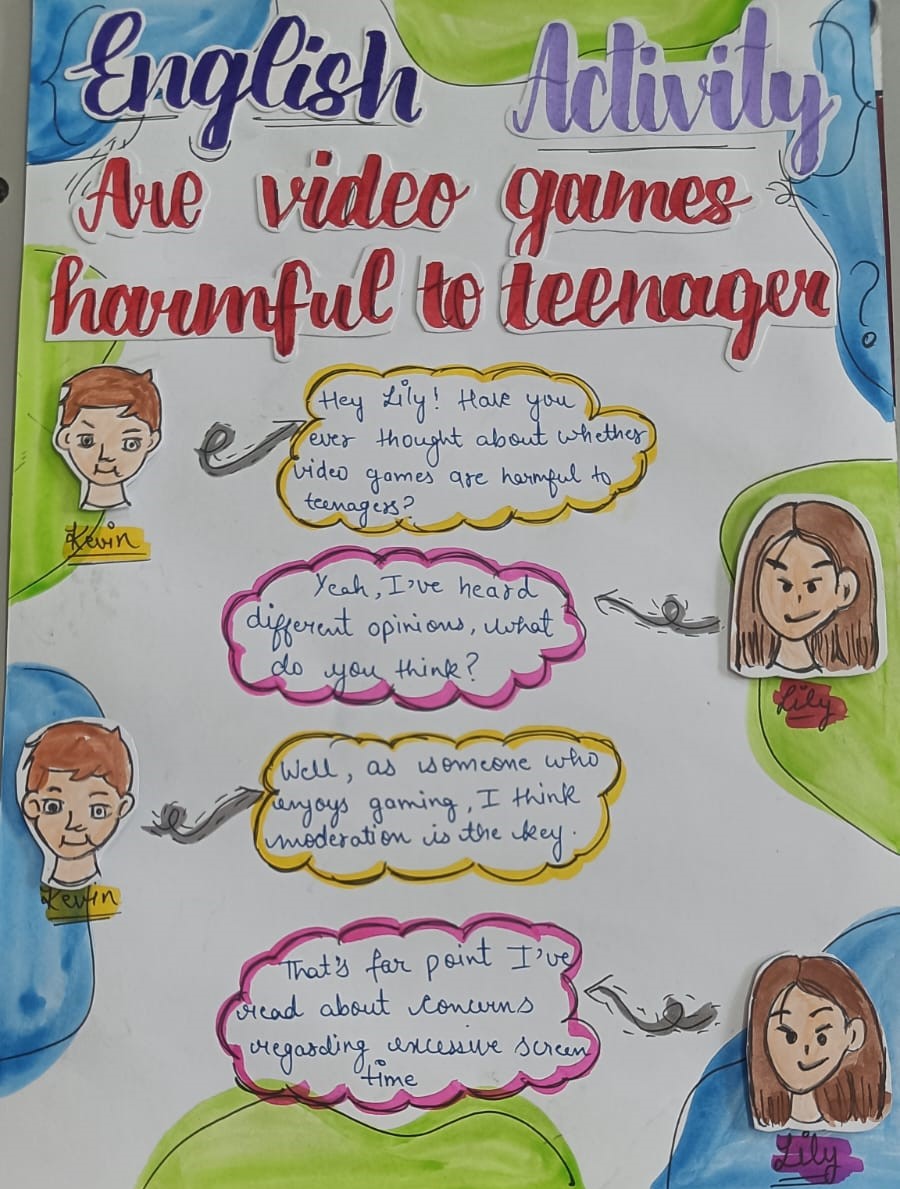 English Activity
Are video games
harmful to teenager
?
Hey Lily! Have you
ever thought about whether
video games are harmful to
teenagers?
Kevin
Yeah, I've heard
different opinions, what
do you think?
Lily
Well, as someone who
enjoys gaming, I think
moderation is the key.
Kevin
That's far point I've
read about concerns
regarding excessive screen
time
Lily